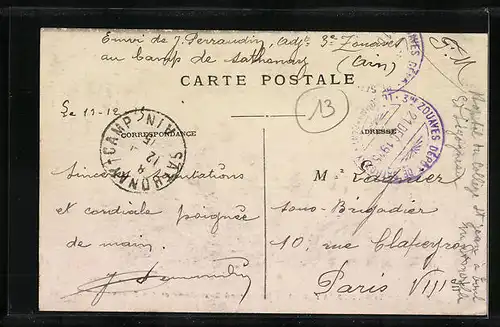 Envoi de J. Perraudin, adjt 3e Zouaves
au Camp de Sathonay (Ain)
G. M.
CARTE POSTALE
13
Le 11-12
CORRESPONDANCE
ADRESSE
CAMP SATHONAY AIN
3ME ZOUAVES DÉPÔT DE
Sincères salutations
et cordiale poignée
de main.
J. Perraudin
Mr
Sous-Brigadier
10, rue Clapeyron
Paris VIII
Hopital du Collège St Jean à